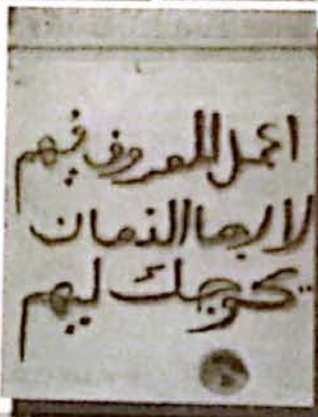 اعمل المعروف فيهم
لا ربما الذمان
يحوجك ليهم